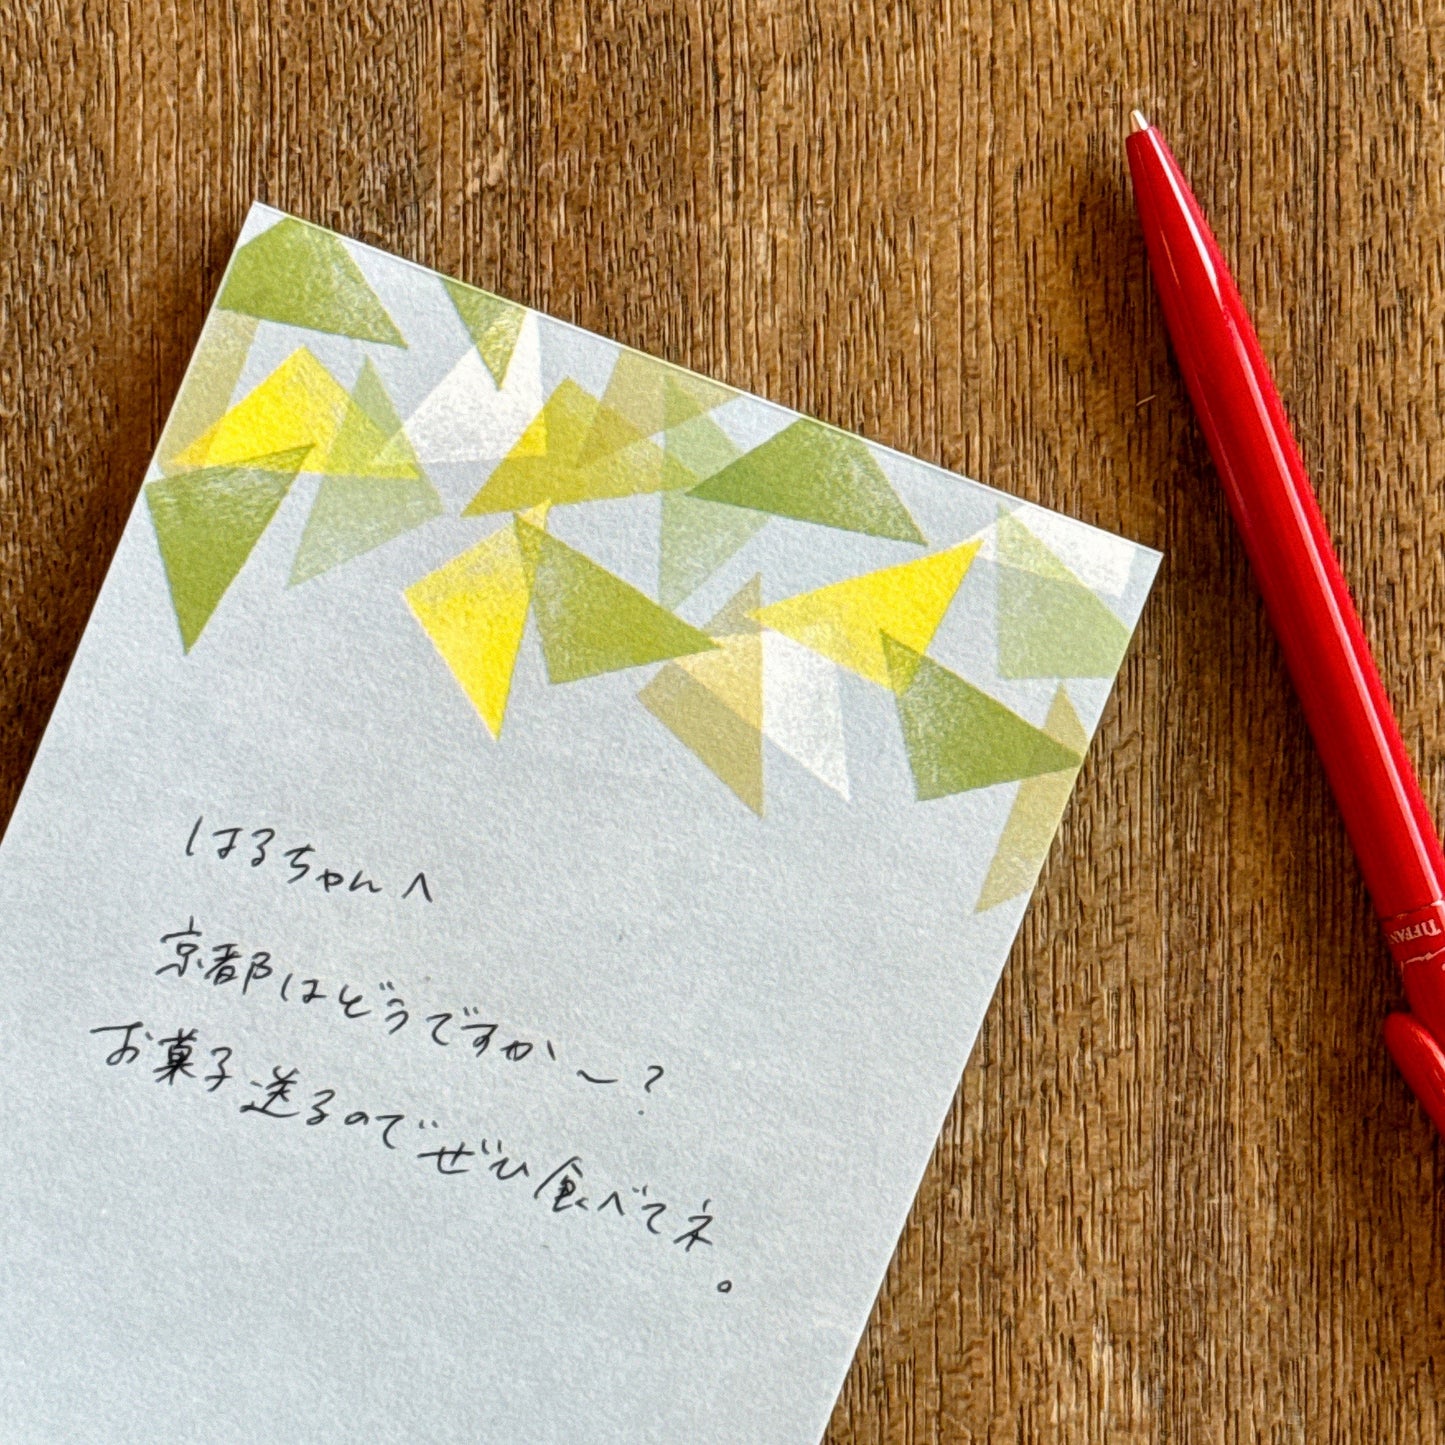 はるちゃんへ
京都はどうですか〜?
お菓子送るのでぜひ食べてネ。